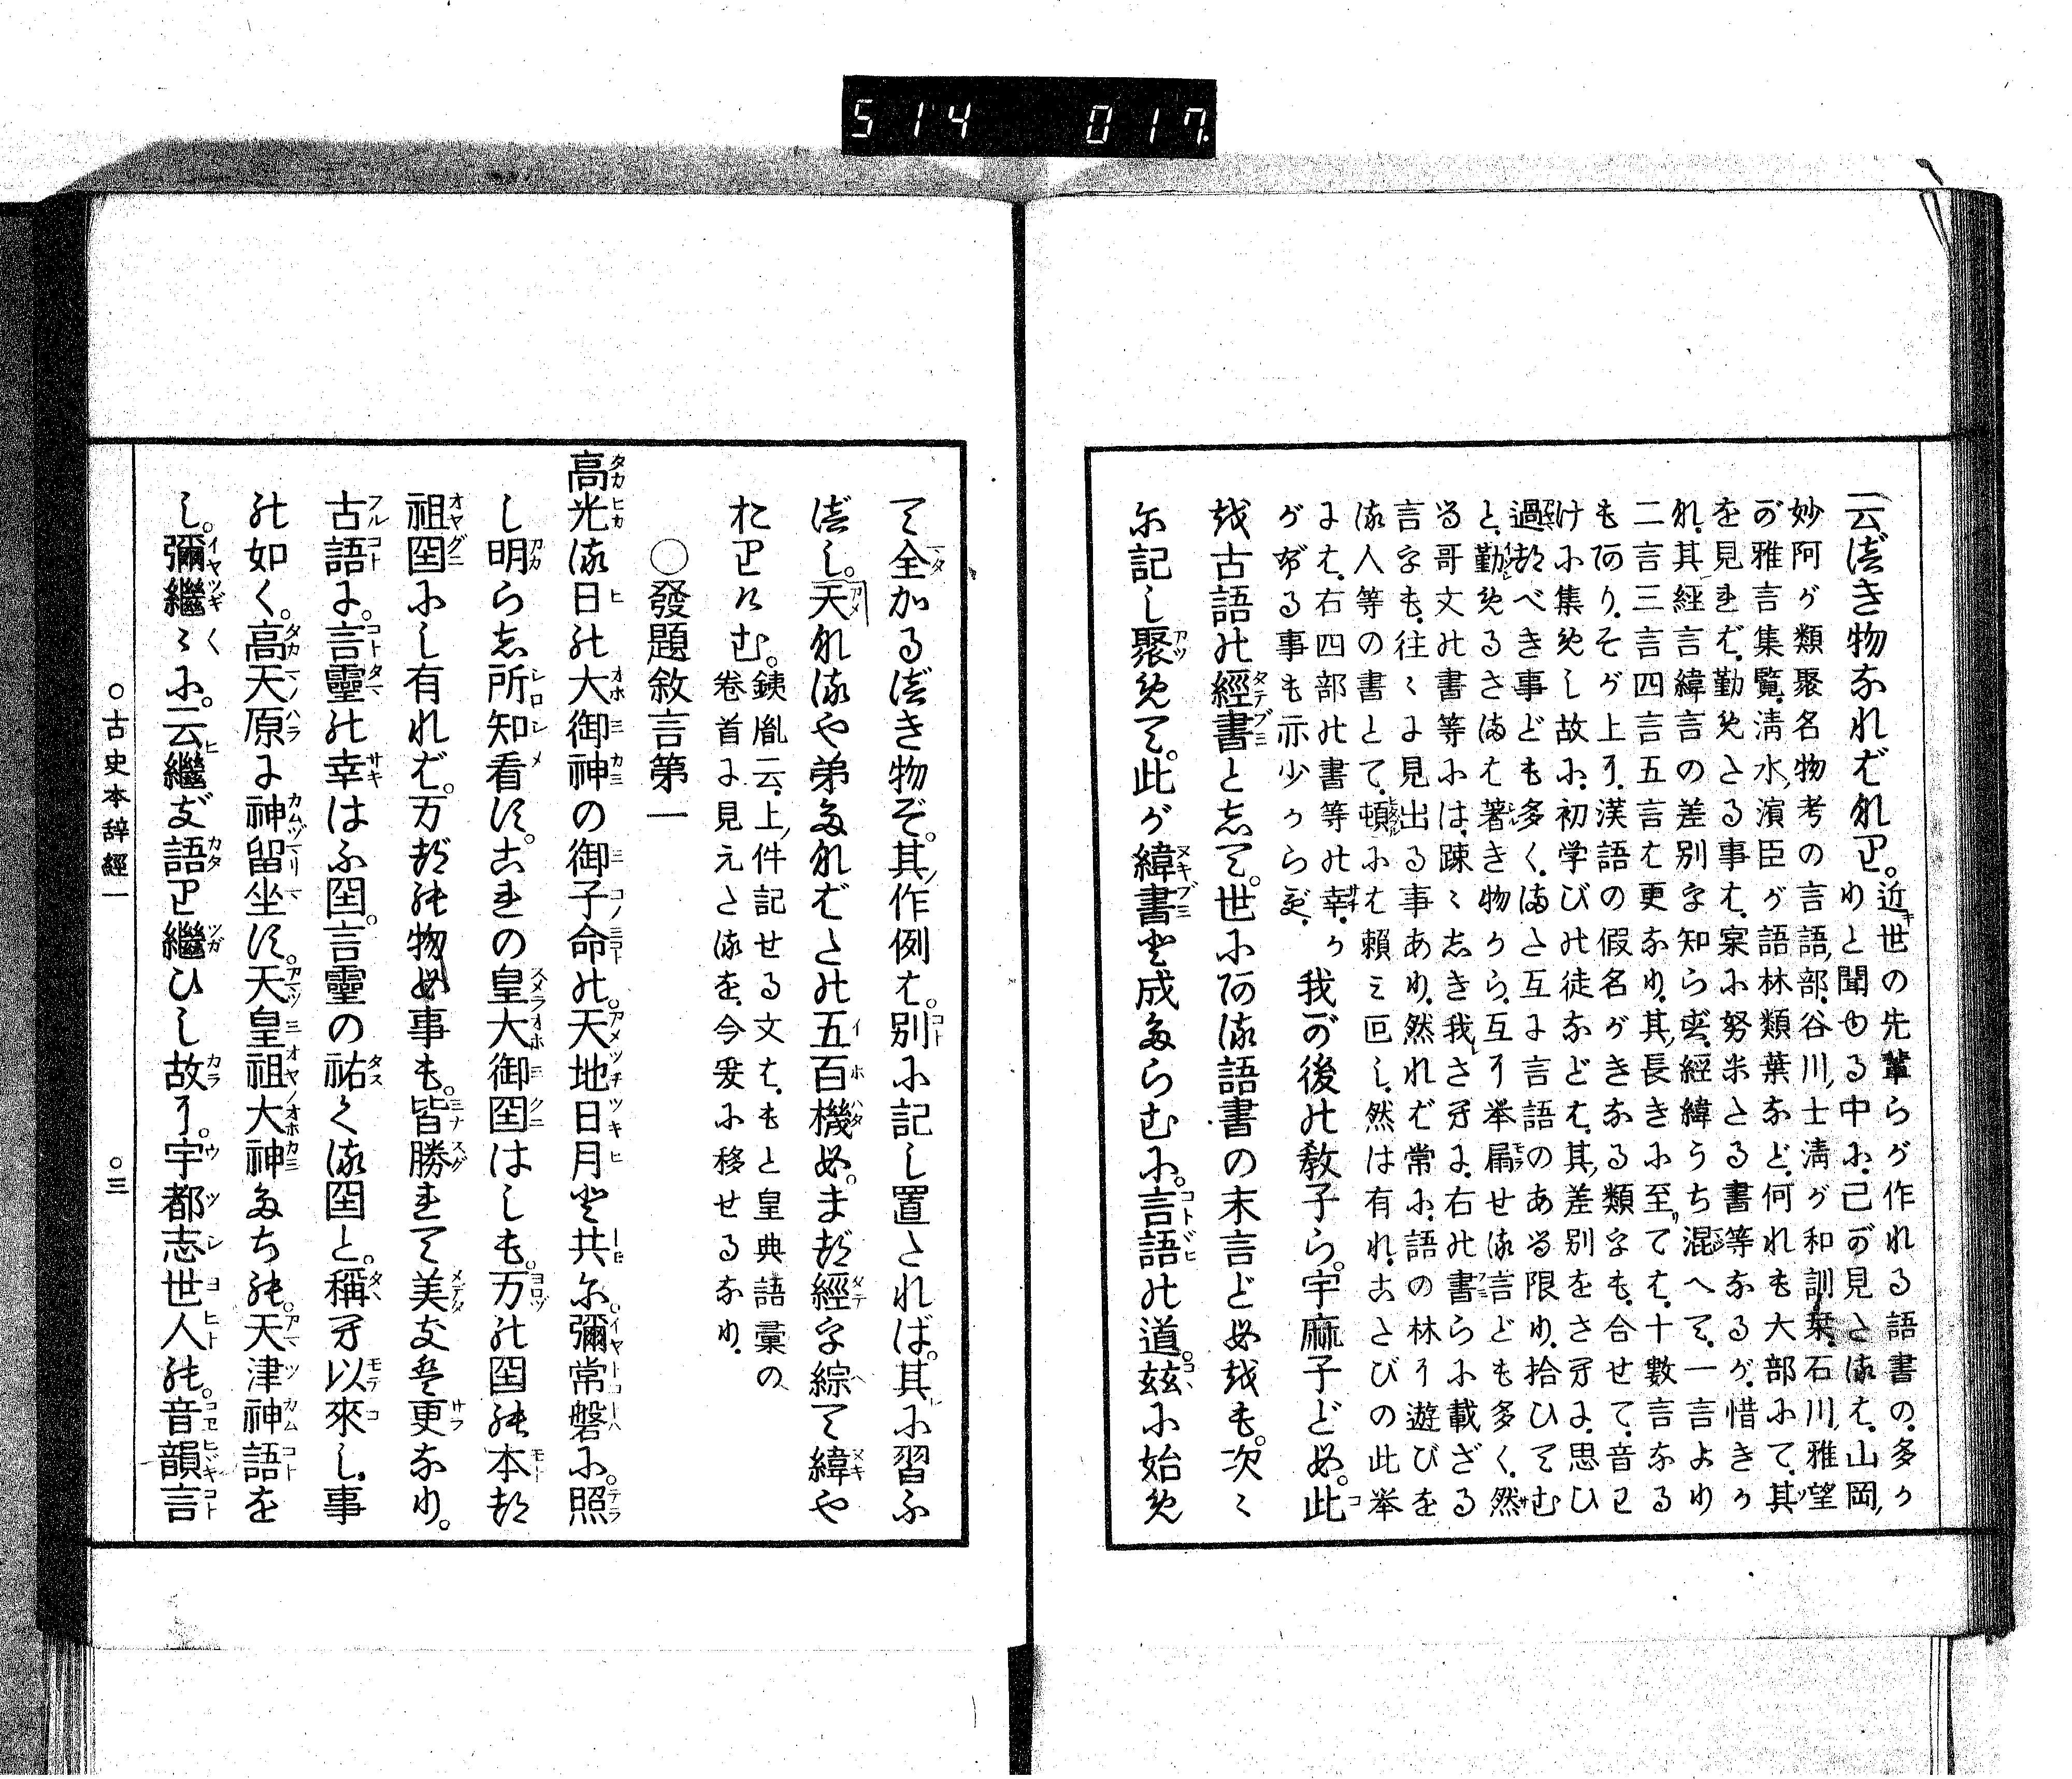 514 017.
云べき物なればなり。近世の先輩らが作れる語書の、多か
りと聞ゆる中に、己が見たるは、山岡
妙阿が類聚名物考の言語部、谷川士淸が和訓栞、石川雅望
が雅言集覧、淸水濱臣が語林類葉など、何れも大部にて、其
を見れば、勤めたる事は、寀に努めたる書等なるが、惜きか
れ、其經言緯言の差別を知らず、經緯うち混へて、一言より
二言三言四言五言は更なり、其長きに至ては、十數言なる
も有り、そが上に、漢語の假名がきなる類をも、合せて、音に
けに集めし故に、初学びの徒などは、其差別をさへに、思ひ
過つべき事ども多く、また互に言語のある限り、拾ひてむ
と、勤めるさまは著き物から、互に挙漏せる言ども多く、然
る哥文の書等には、踈〻しき我さへに、右の書らに載ざる
言をも、往〻に見出る事あり、然れば常に、語の林に遊びを
る人等の書とて、頓には賴み叵し、然は有れ、たびの此挙
には、右四部の書等の幸か
がぶる事も亦少からず、
我が後の教子ら。宇麻子ども。此
を古語の經書として。世にある語書の末言どもをも。次〻
に記し聚めて。此が緯書と成たらむに。言語の道。玆に始め
て全かるべき物ぞ。其作例は。別に記し置たれば。其に習ふ
べし。天なるや弟たなばたの五百機も。まづ經を綜て緯や
おりけむ。
銕胤云、上件記せる文は、もと皇典語彙の
卷首に見えたるを、今爰に移せるなり、
○發題敘言第一
高光る日の大御神の御子命の。天地日月と共に。彌常磐に。照
し明らし所知看す。これの皇大御国はしも。万の国の本つ
祖国にし有れば。万づの物も事も。皆勝れて美きは更なり。
古語に。言靈の幸はふ国。言靈の祐くる国と。稱へ以來し。事
の如く。高天原に神留坐す。天皇祖大神たちの。天津神語を
し。彌繼〻に。云繼ぎ語り繼ひし故に。宇都志世人の。音韻言
○古史本辞經一 ○三